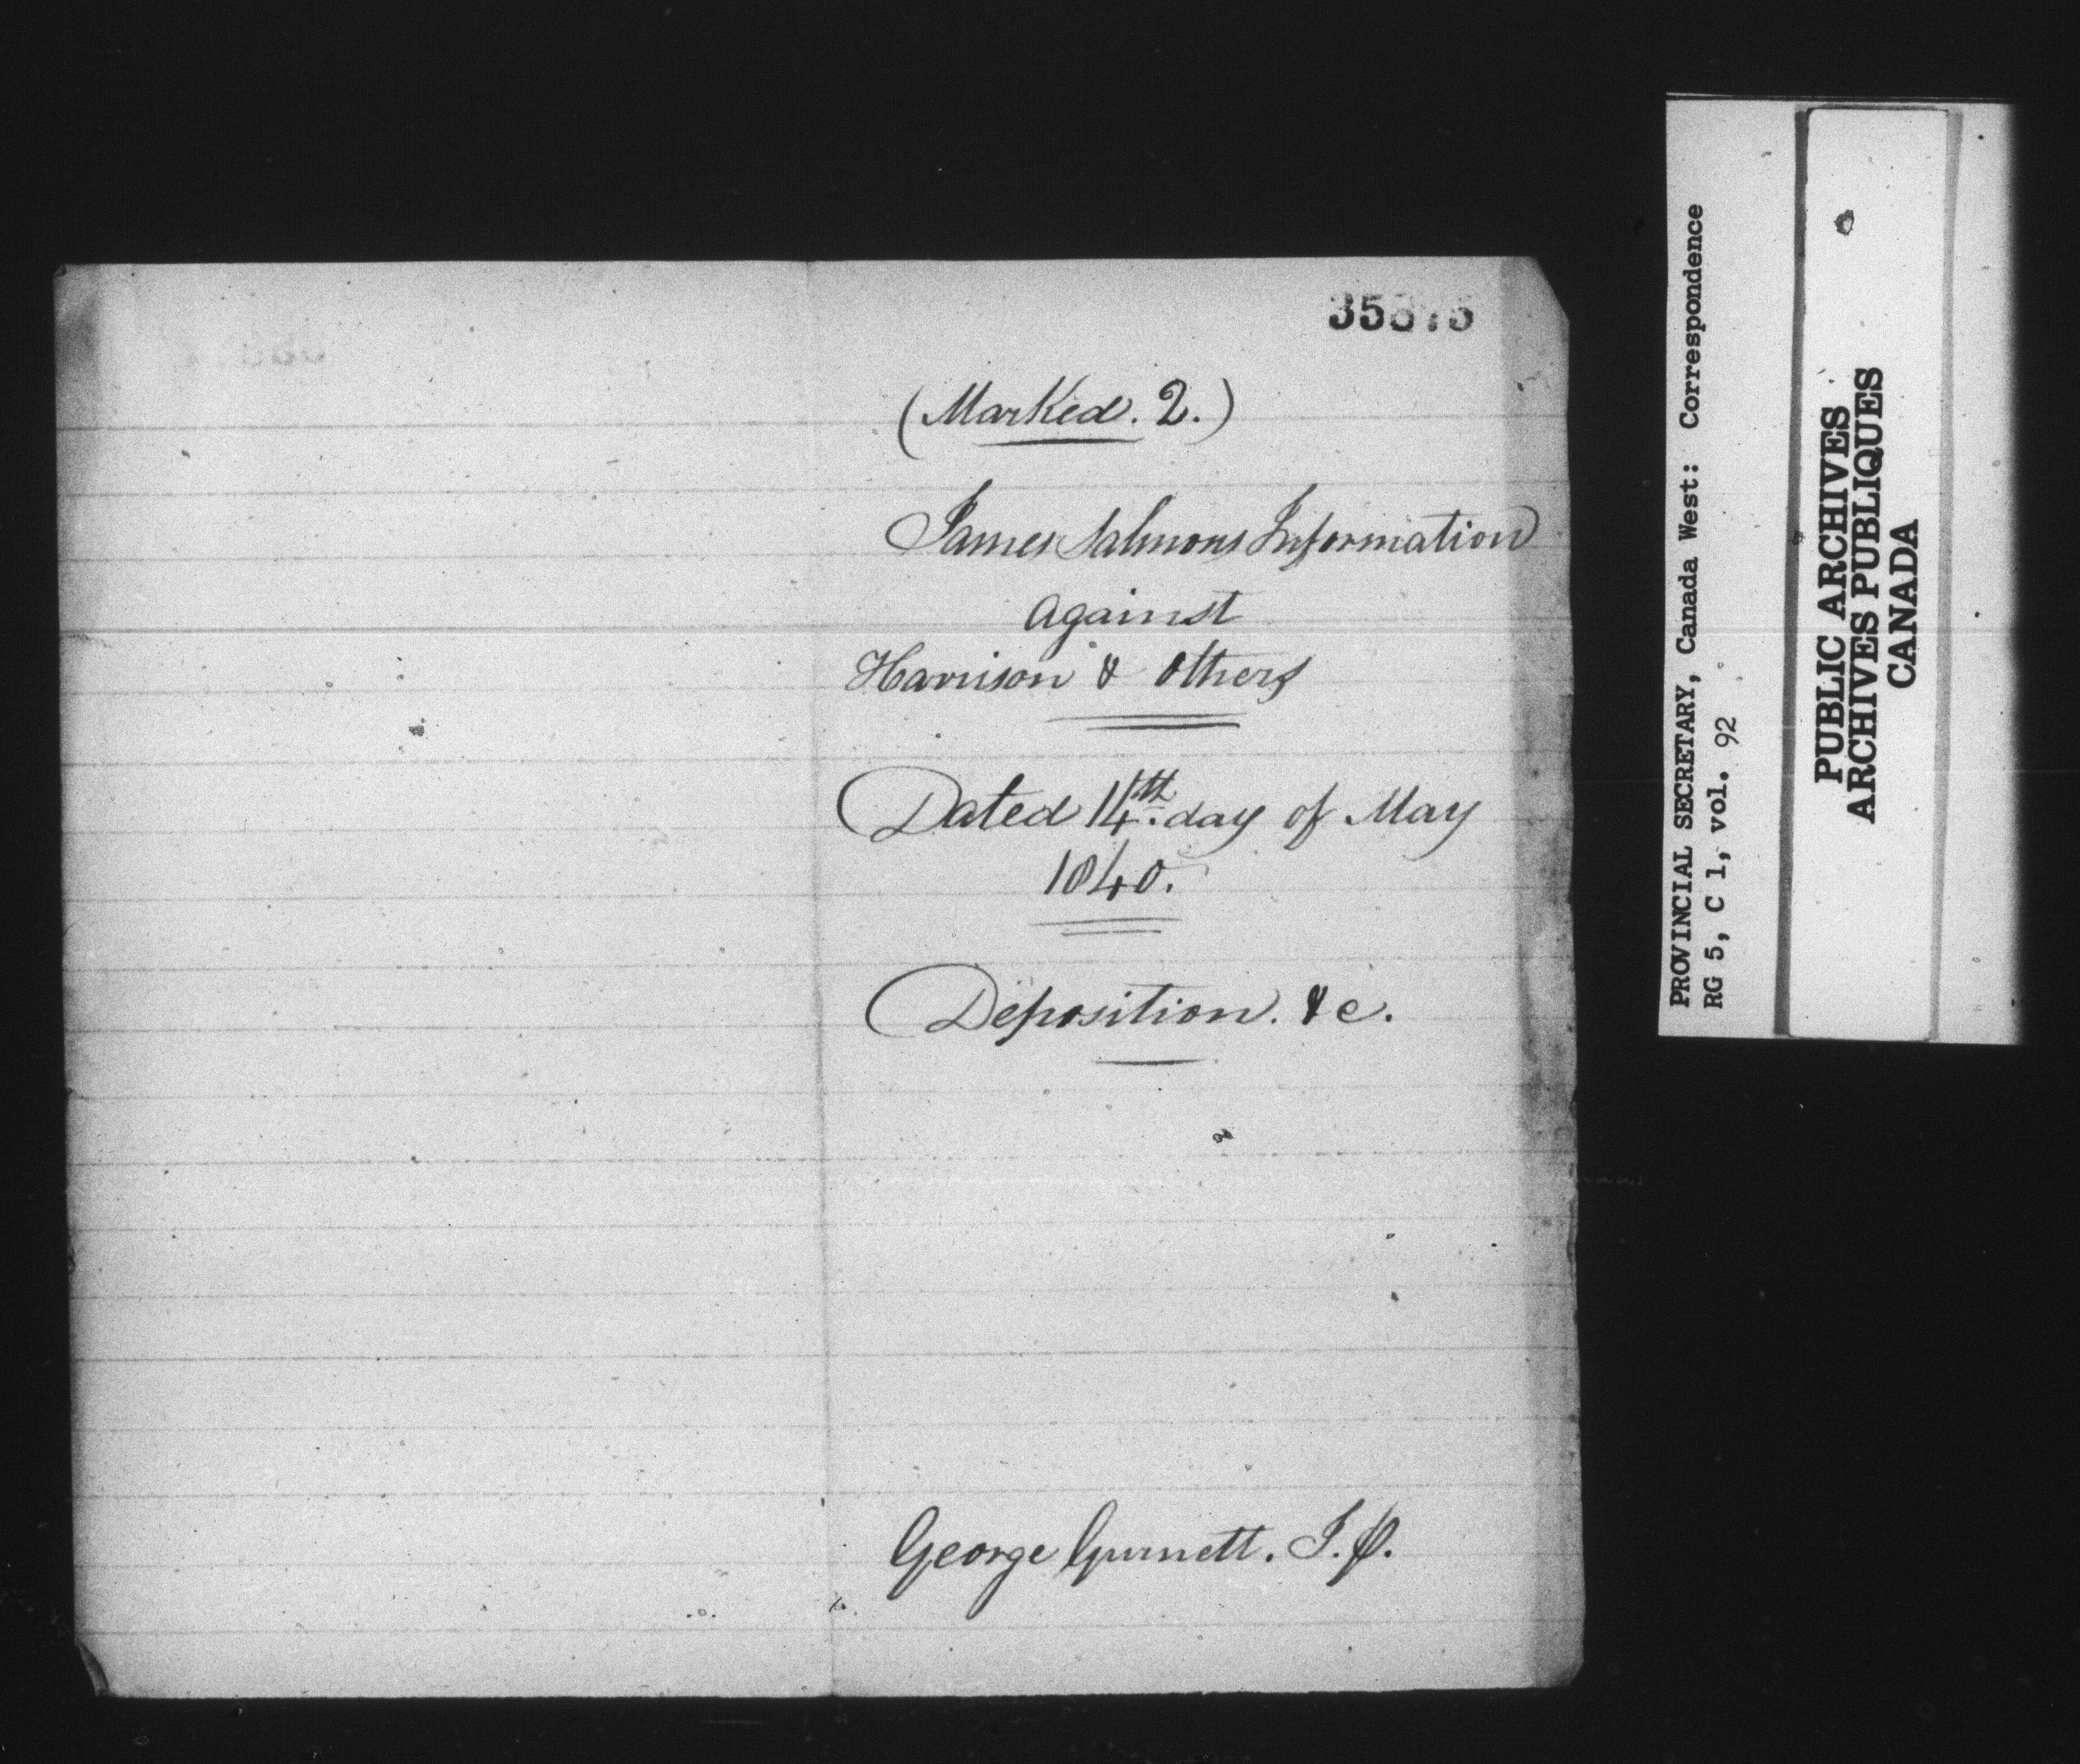 (Marked. 2.)
James Salmons Information
against
Harrison & Others
Dated 14th. day of May
1840.
Deposition. &c.
George Gurnett. J.P.
PROVINCIAL SECRETARY, Canada West: Correspondence
RG 5, C 1, vol. 92
PUBLIC ARCHIVES
ARCHIVES PUBLIQUES
CANADA